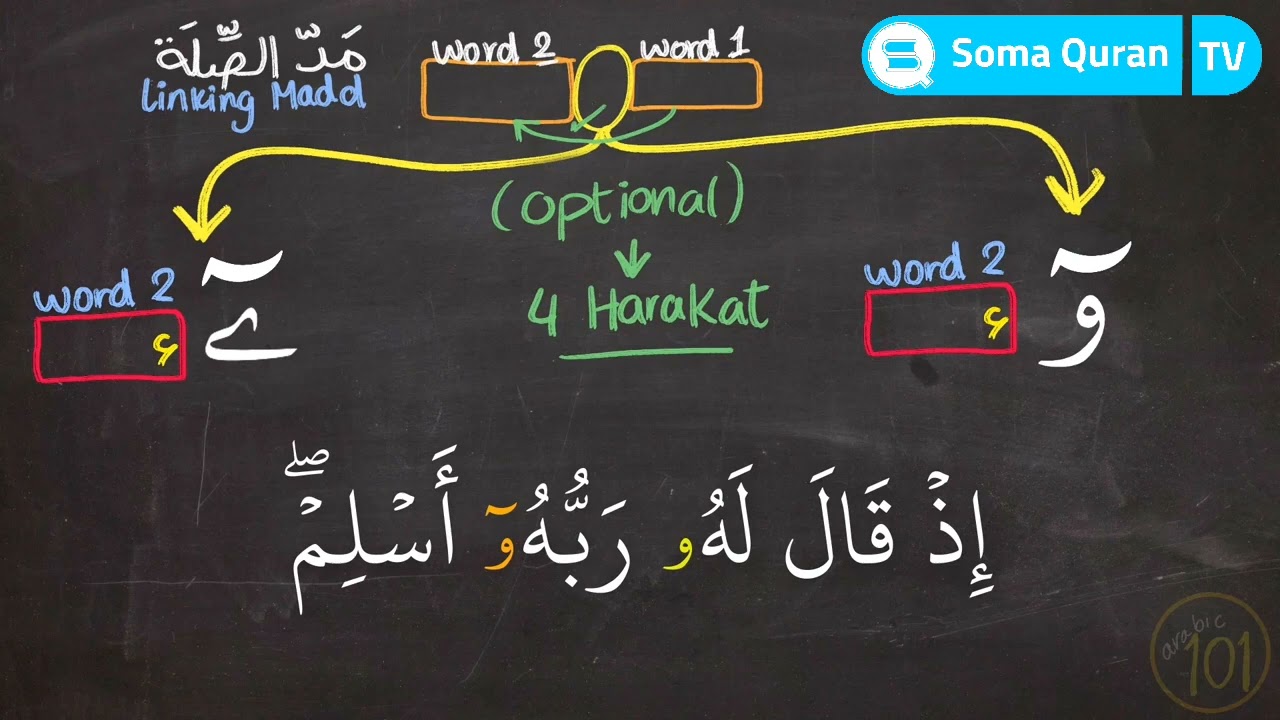 مَدّ الصِّلَة
Linking Madd
word 2 word 1
Soma Quran TV
(optional)
4 Harakat
word 2
ء
ےٓ
word 2
ء
وٓ
إِذۡ قَالَ لَهُۥ رَبُّهُۥٓ أَسۡلِمۡۖ
arabic 101